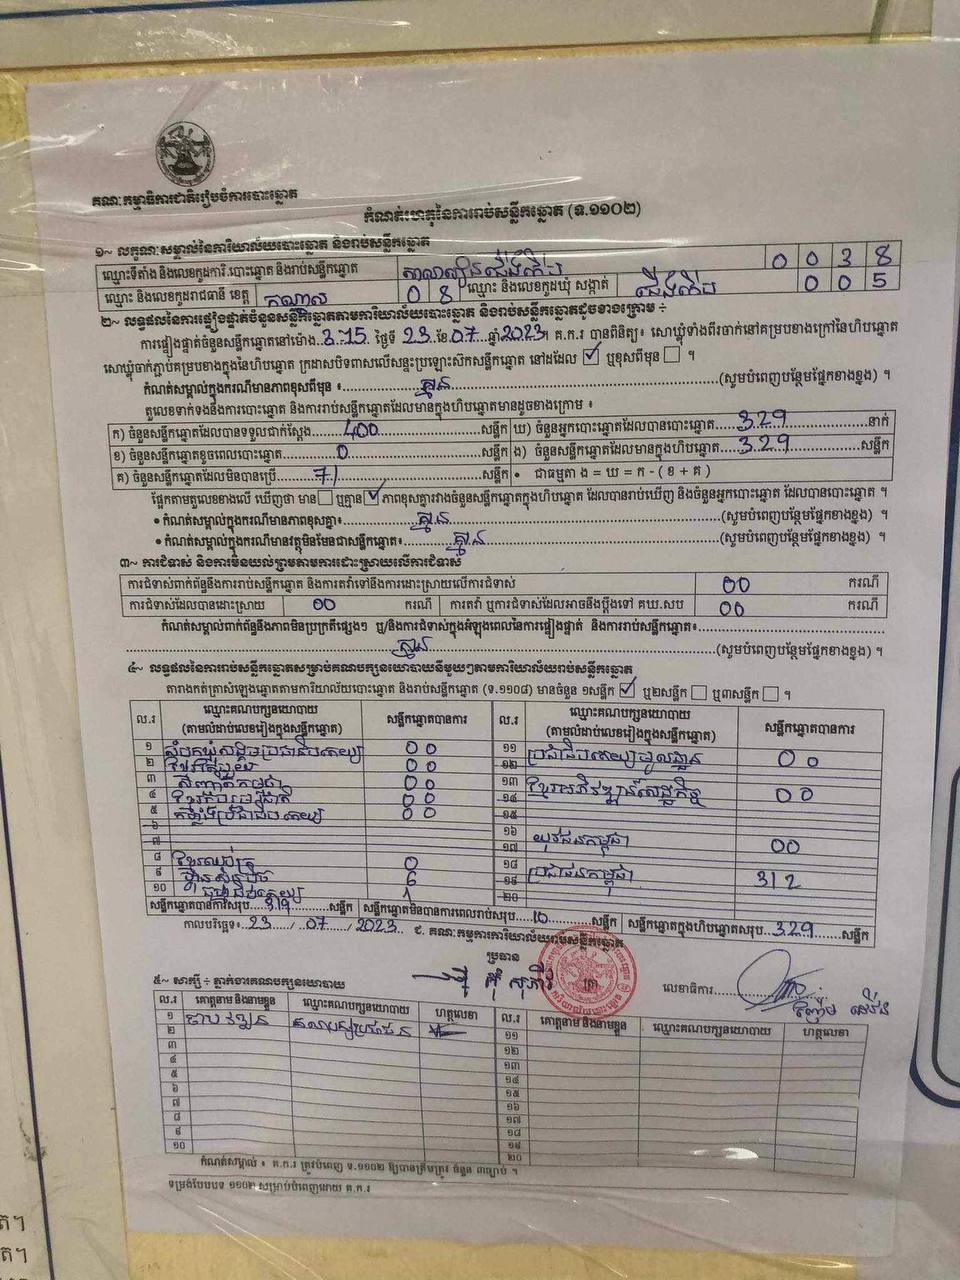 គណៈកម្មាធិការជាតិរៀបចំការបោះឆ្នោត
កំណត់ហេតុនៃការរាប់សន្លឹកឆ្នោត (ទ.១១០២)
១~ លក្ខណៈសម្គាល់នៃការិយាល័យបោះឆ្នោត និងរាប់សន្លឹកឆ្នោត
ឈ្មោះទីតាំង និងលេខកូដការិ.បោះឆ្នោត និងរាប់សន្លឹកឆ្នោត 0 0 3 8
ឈ្មោះ និងលេខកូដរាជធានី ខេត្ត កណ្តាល 0 8 ឈ្មោះ និងលេខកូដឃុំ សង្កាត់ ជើងកើប 0 0 5
២~ លទ្ធផលនៃការផ្ទៀងផ្ទាត់ចំនួនសន្លឹកឆ្នោតតាមការិយាល័យបោះឆ្នោត និងរាប់សន្លឹកឆ្នោតដូចខាងក្រោម ÷
ការផ្ទៀងផ្ទាត់ចំនួនសន្លឹកឆ្នោតនៅម៉ោង 3:15 ថ្ងៃទី 23 ខែ 07 ឆ្នាំ 2023 គ.ក.រ បានពិនិត្យ៖ សោឃ្លុំទាំងពីរចាក់នៅគម្របខាងក្រៅនៃហិបឆ្នោត
សោឃ្លុំចាក់ភ្ជាប់គម្របខាងក្នុងនៃហិបឆ្នោត ក្រដាសបិទពាសលើសន្ទះប្រឡោះស៊កសន្លឹកឆ្នោត នៅដដែល ✓ ឬខុសពីមុន ។
កំណត់សម្គាល់ក្នុងករណីមានភាពខុសពីមុន ៖ គ្មាន (សូមបំពេញបន្ថែមផ្នែកខាងខ្នង) ។
តួលេខទាក់ទងនឹងការបោះឆ្នោត និងការរាប់សន្លឹកឆ្នោតដែលមានក្នុងហិបឆ្នោតមានដូចខាងក្រោម ៖
ក) ចំនួនសន្លឹកឆ្នោតដែលបានទទួលជាក់ស្តែង 400 សន្លឹក ឃ) ចំនួនអ្នកបោះឆ្នោតដែលបានបោះឆ្នោត 329 នាក់
ខ) ចំនួនសន្លឹកឆ្នោតខូចពេលបោះឆ្នោត 0 សន្លឹក ង) ចំនួនសន្លឹកឆ្នោតដែលមានក្នុងហិបឆ្នោត 329 សន្លឹក
គ) ចំនួនសន្លឹកឆ្នោតដែលមិនបានប្រើ 71 សន្លឹក • ជាធម្មតា ង = ឃ = ក - ( ខ + គ )
ផ្អែកតាមតួលេខខាងលើ ឃើញថា មាន ឬគ្មាន ✓ ភាពខុសគ្នារវាងចំនួនសន្លឹកឆ្នោតក្នុងហិបឆ្នោត ដែលបានរាប់ឃើញ និងចំនួនអ្នកបោះឆ្នោត ដែលបានបោះឆ្នោត ។
• កំណត់សម្គាល់ក្នុងករណីមានភាពខុសគ្នា៖ គ្មាន (សូមបំពេញបន្ថែមផ្នែកខាងខ្នង) ។
• កំណត់សម្គាល់ក្នុងករណីមានវត្ថុមិនមែនជាសន្លឹកឆ្នោត៖ គ្មាន (សូមបំពេញបន្ថែមផ្នែកខាងខ្នង) ។
៣~ ការជំទាស់ និងការមិនយល់ព្រមតាមការដោះស្រាយលើការជំទាស់
ការជំទាស់ពាក់ព័ន្ធនឹងការរាប់សន្លឹកឆ្នោត និងការតវ៉ាទៅនឹងការដោះស្រាយលើការជំទាស់ 00 ករណី
ការជំទាស់ដែលបានដោះស្រាយ 00 ករណី ការតវ៉ា ឬការជំទាស់ដែលអាចនឹងប្តឹងទៅ គឃ.សប 00 ករណី
កំណត់សម្គាល់ពាក់ព័ន្ធនឹងភាពមិនប្រក្រតីផ្សេងៗ ឬ/និងការជំទាស់ក្នុងអំឡុងពេលនៃការផ្ទៀងផ្ទាត់ និងការរាប់សន្លឹកឆ្នោត៖
គ្មាន (សូមបំពេញបន្ថែមផ្នែកខាងខ្នង) ។
៤~ លទ្ធផលនៃការរាប់សន្លឹកឆ្នោតសម្រាប់គណបក្សនយោបាយនីមួយៗតាមការិយាល័យរាប់សន្លឹកឆ្នោត
តារាងកត់ត្រាសំឡេងឆ្នោតតាមការិយាល័យបោះឆ្នោត និងរាប់សន្លឹកឆ្នោត (ទ.១១០៨) មានចំនួន ១សន្លឹក ✓ ឬ២សន្លឹក ឬ៣សន្លឹក ។
ល.រ ឈ្មោះគណបក្សនយោបាយ (តាមលំដាប់លេខរៀងក្នុងសន្លឹកឆ្នោត) សន្លឹកឆ្នោតបានការ ល.រ ឈ្មោះគណបក្សនយោបាយ (តាមលំដាប់លេខរៀងក្នុងសន្លឹកឆ្នោត) សន្លឹកឆ្នោតបានការ
១ សំបុកឃ្មុំសង្គមប្រជាធិបតេយ្យ 00 ១១
២ 00 ១២ ប្រជាធិបតេយ្យមូលដ្ឋាន 00
៣ 00 ១៣
៤ 00 ១៤ ខ្មែរអភិវឌ្ឍន៍សេដ្ឋកិច្ច 00
៥ កម្លាំងប្រជាធិបតេយ្យ 00 ១៥
៦ ១៦
៧ ១៧ យុវជនកម្ពុជា 00
៨ ខ្មែរឈប់ក្រ 0 ១៨ ប្រជាជនកម្ពុជា 312
៩ ហ្វ៊ុនស៊ិនប៉ិច 6 ១៩
១០ ធម្មាធិបតេយ្យ 1 ២០
សន្លឹកឆ្នោតបានការសរុប 319 សន្លឹក សន្លឹកឆ្នោតមិនបានការពេលរាប់សរុប 10 សន្លឹក សន្លឹកឆ្នោតក្នុងហិបឆ្នោតសរុប 329 សន្លឹក
កាលបរិច្ឆេទ៖ 23 / 07 / 2023 ជ. គណៈកម្មការការិយាល័យរាប់សន្លឹកឆ្នោត
ប្រធាន
លេខាធិការ
៥~ សាក្សី ÷ ភ្នាក់ងារគណបក្សនយោបាយ
ល.រ គោត្តនាម និងនាមខ្លួន ឈ្មោះគណបក្សនយោបាយ ហត្ថលេខា ល.រ គោត្តនាម និងនាមខ្លួន ឈ្មោះគណបក្សនយោបាយ ហត្ថលេខា
១ ១១
២ ១២
៣ ១៣
៤ ១៤
៥ ១៥
៦ ១៦
៧ ១៧
៨ ១៨
៩ ១៩
១០ ២០
កំណត់សម្គាល់ ៖ គ.ក.រ ត្រូវបំពេញ ទ.១១០២ ឱ្យបានត្រឹមត្រូវ ចំនួន ៣ច្បាប់ ។
ទម្រង់បែបបទ ១១០២ សម្រាប់បំពេញដោយ គ.ក.រ